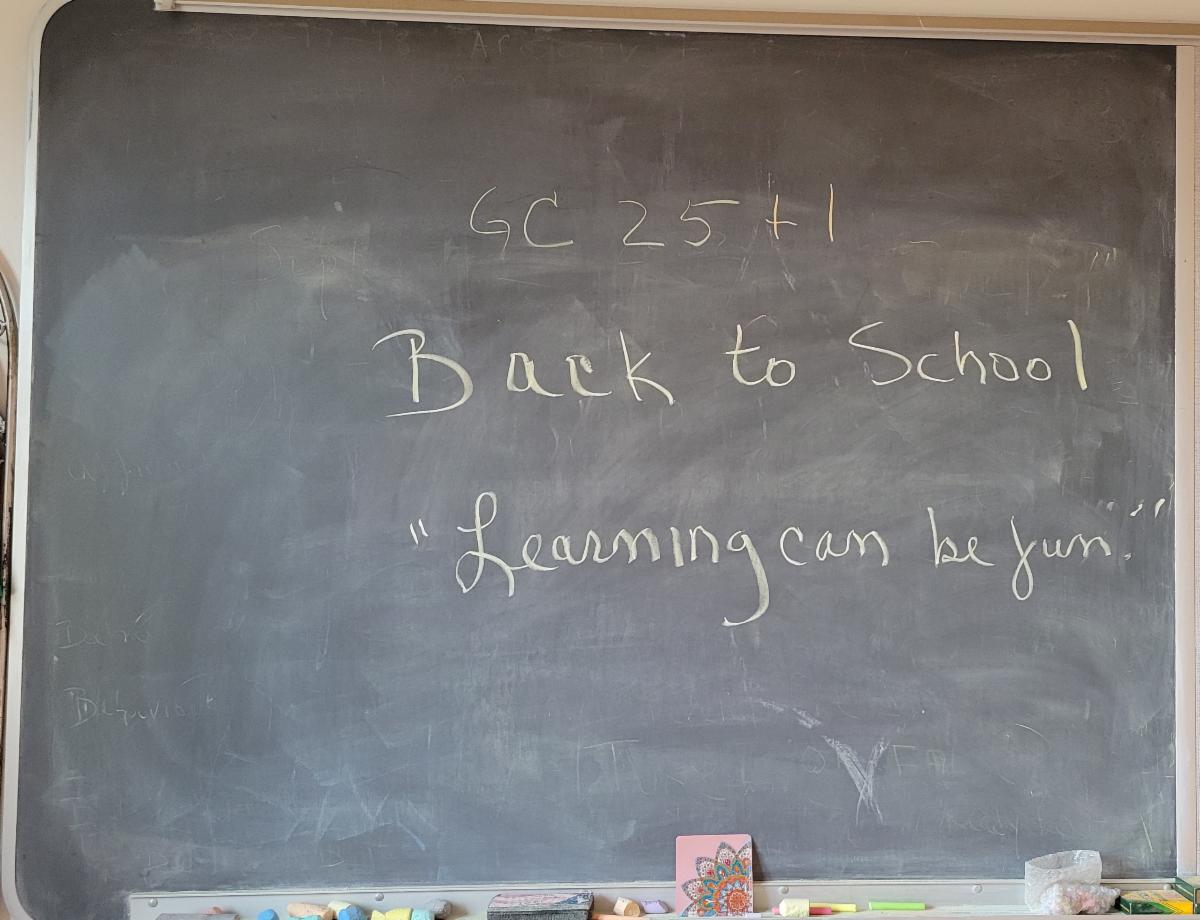 Sept
GC 25 +1
Back to School
"Learning can be fun."
Behaviour